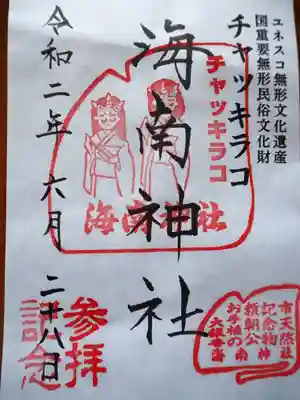 ユネスコ無形文化遺産
国重要無形民俗文化財
チャッキラコ
海南神社
令和二年六月二十八日
チャッキラコ
海南神社
参拝
記念
市天然
記念物
頼朝公
お手植の
大銀杏
海南神社